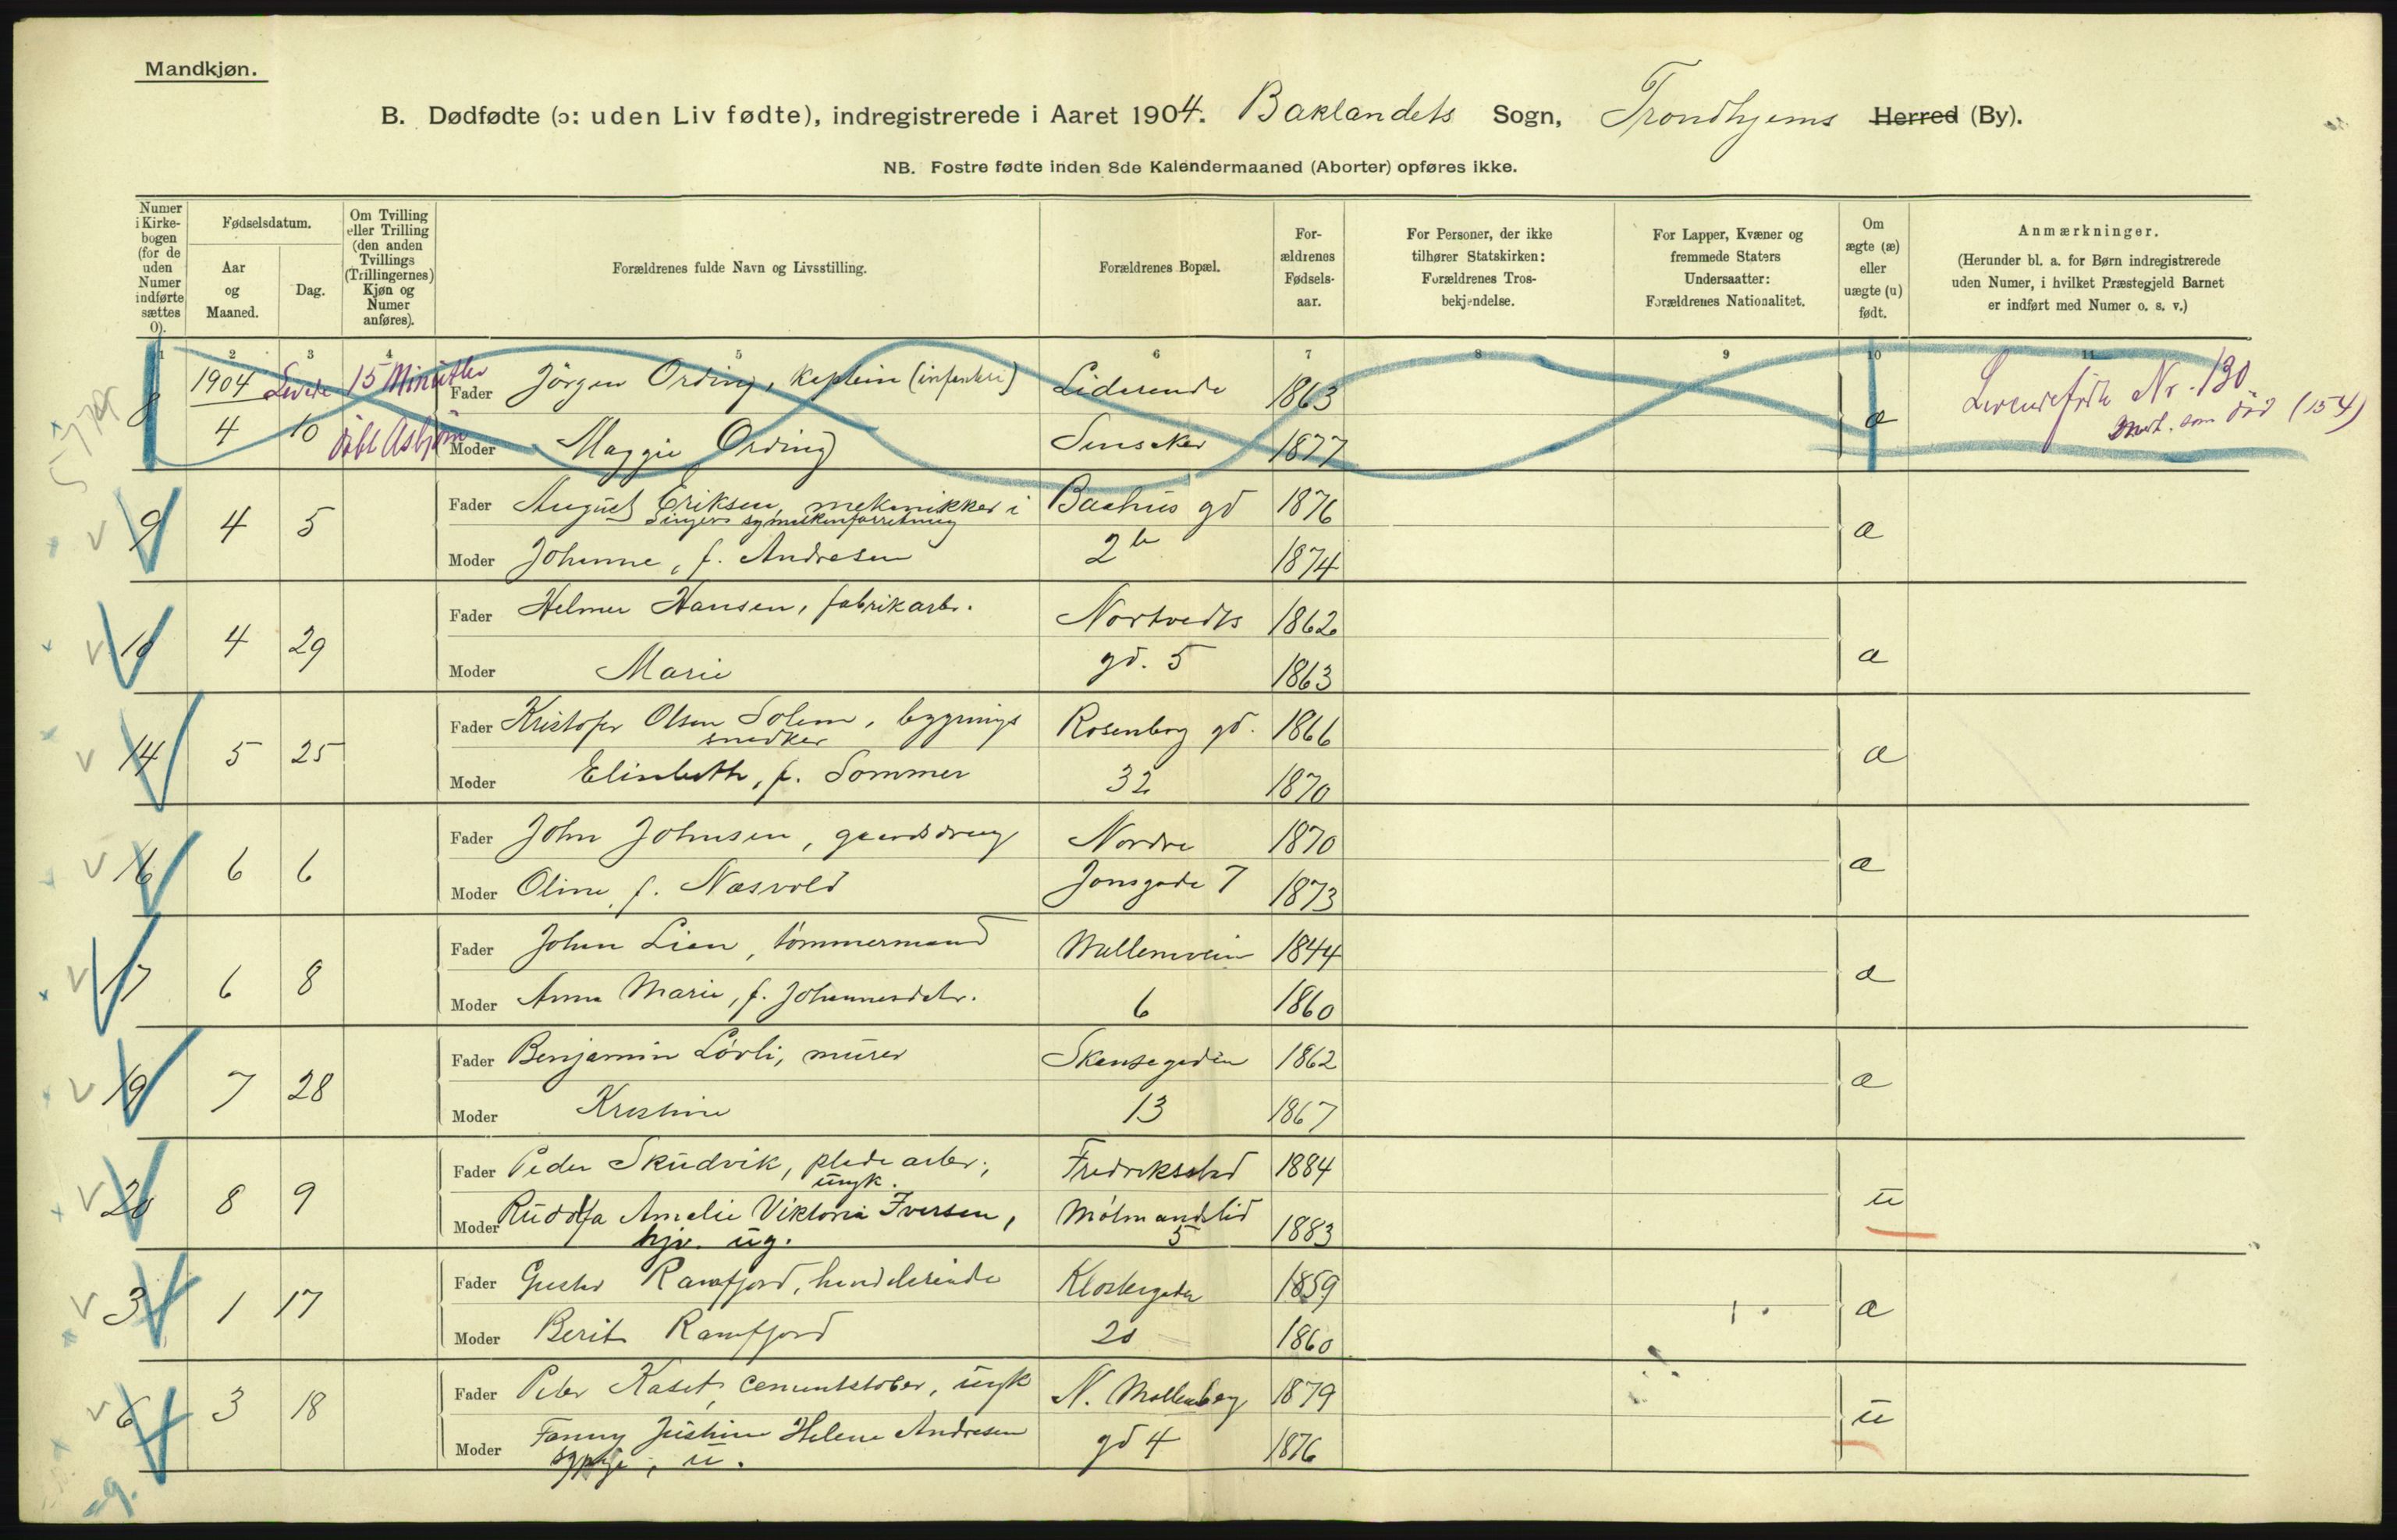 Mandkjøn.
B. Dødfødte (ɔ: uden Liv fødte), indregistrerede i Aaret 1904. Baklandets Sogn, Trondhjems Herred (By).
NB. Fostre fødte inden 8de Kalendermaaned (Aborter) opføres ikke.
Numer i Kirke-bogen (for de uden Numer indførte sættes 0).
Fødselsdatum.
Aar og Maaned.
Dag.
Om Tvilling eller Trilling (den anden Tvillings (Trillingernes) Kjøn og Numer anføres).
Forældrenes fulde Navn og Livsstilling.
Forældrenes Bopæl.
For-ældrenes Fødsels-aar.
For Personer, der ikke tilhører Statskirken: Forældrenes Tros-bekjendelse.
For Lapper, Kvæner og fremmede Staters Undersaatter: Forældrenes Nationalitet.
Om ægte (æ) eller uægte (u) født.
Anmærkninger.
(Herunder bl. a. for Børn indregistrerede uden Numer, i hvilket Præstegjeld Barnet er indført med Numer o. s. v.)
1 2 3 4 5 6 7 8 9 10 11
8 1904 Levede 15 Minutter Fader Jörgen Ording, kaptein (infanteri) 1863 æ Levendefödte Nr. 130
4 10 döbt Asbjörn Moder Maggie Ording 1877 som död (154)
9 4 5 Fader August Eriksen, mekanikker i Bachus gd 1876 æ
Singers symaskinforretning
Moder Johanne, f. Andresen 2b 1874
10 4 29 Fader Helmer Hansen, fabrikarb. Nortvedts 1862 æ
Moder Marie gd. 5 1863
14 5 25 Fader Kristofer Olsen Solem, bygnings Rosenborg gd. 1866 æ
snedker
Moder Elisabeth, f. Sommer 32 1870
16 6 6 Fader John Johnsen, gaardsdreng Nordre 1870 æ
Moder Oline, f. Næsvold Jonsgade 7 1873
17 6 8 Fader Johan Lian, tømmermand 1844 æ
Moder Anna Marie, f. Johannesdatr. 6 1860
19 7 28 Fader Benjamin Lövli, murer Skansegaden 1862 æ
Moder Kristine 13 1867
20 8 9 Fader Peder Skudvik, pladearbr., Fredriksstad 1884 u
ungk.
Moder Rudolfa Amalie Viktoria Iversen, Mólmandslid 1883
hjv. ug. 5
3 1 17 Fader Gustav Ramfjord, handelsreisende Klostergaten 1859 æ
Moder Berit Ramfjord 20 1860
6 3 18 Fader Peter Kaset, cementstøber, ungk N. Møllenberg 1879 u
Moder Fanny Justine Helene Andresen gd 4 1876
sypige, u.